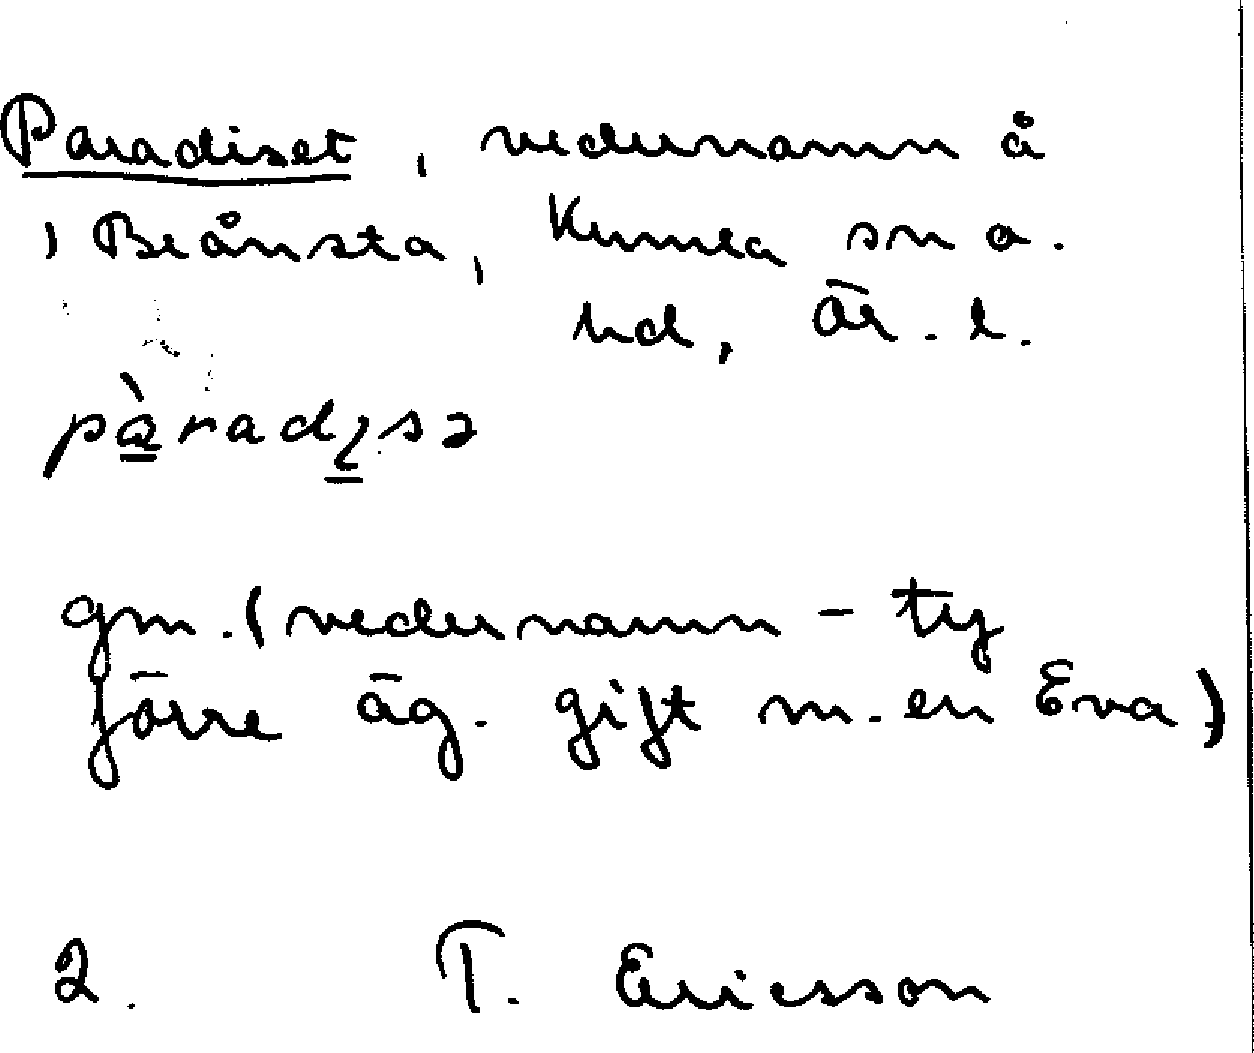 Paradiset, vedernamn å
1 Brånsta, Kumla sn o.
hd, Ör. l.
pàradisə
gm. (vedernamn - ty
förre äg. gift m. en Eva)
2. T. Ericsson